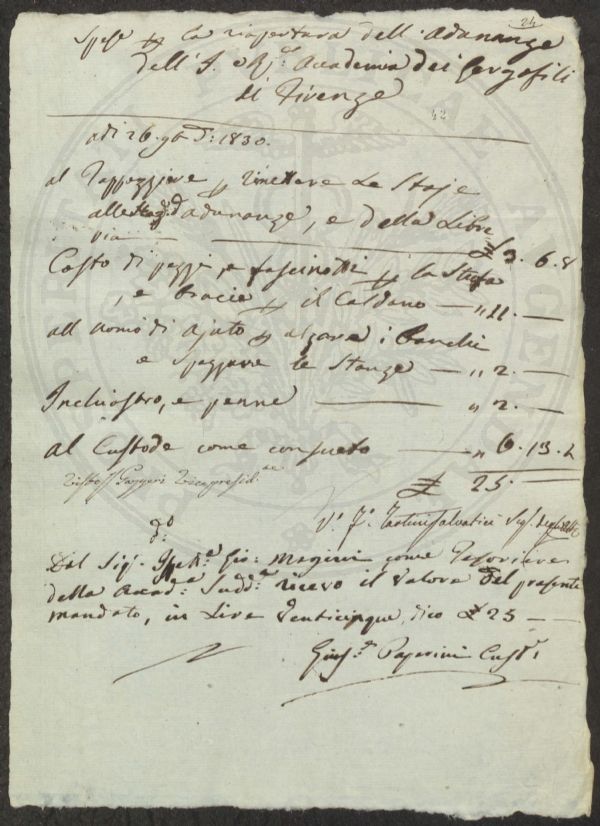 24
Spese p la riapertura dell'Adunanze
dell'I. e R.e Accademia dei Gergofili
di Firenze
42
adi 26. 9bre d: 1830.
al Tappezziere p rimettere Le Stoje
alle Adunanze, e della Libre
ria £ 3. 6. 8
Costo di pezzi, e fascinotti p la Stufa
, e bracie p il Caldano — " 11. —
all uomo di ajuto p alzare i banchi
e spazzare le Stanze — " 2. —
Inchiostro, e penne — " 2. —
al Custode come consueto — " 6. 13. 4
£ 25.
V.o F. Tartini Salvatici Seg. degli Atti
d.o
Dal Sig. Gio: Magini come Tesoriere
della Accad.a Sudd.a ricevo il valore del presente
mandato, in Lire Venticinque, dico £ 25 —
Gius.e Paperini Cust.e